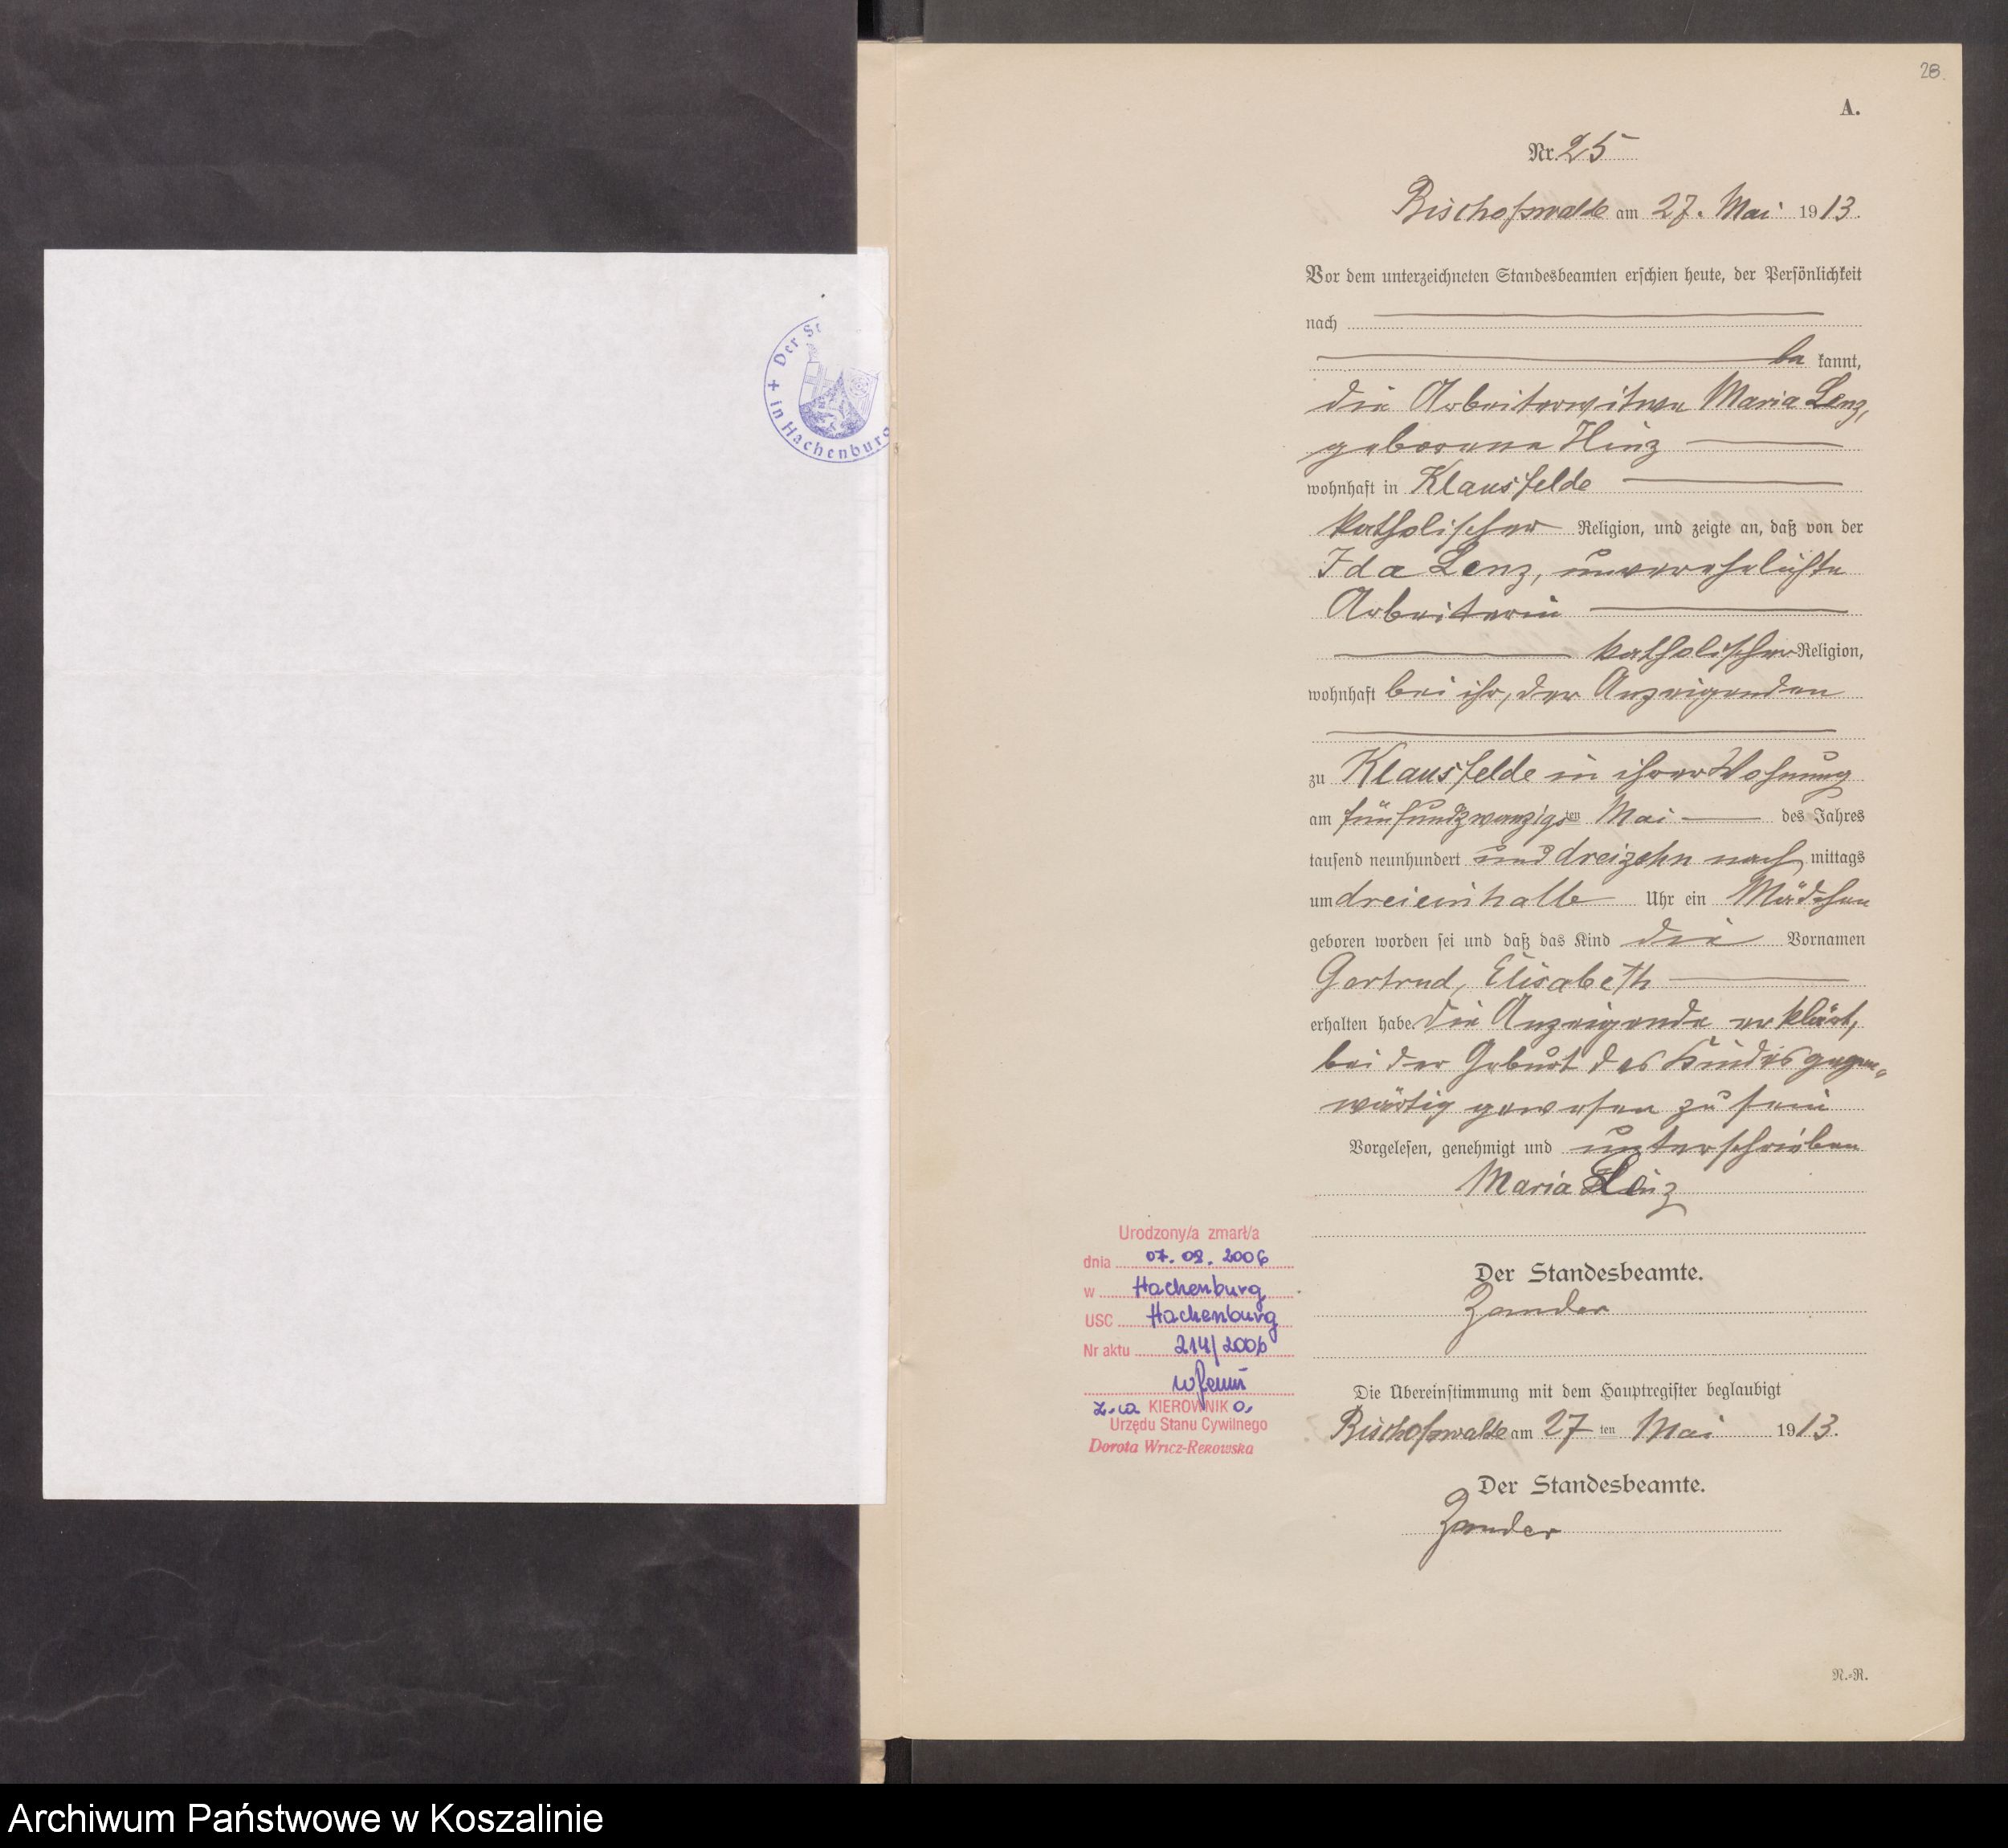 28
A.
Nr. 25
Bischofswalde am 27. Mai 1913.
Vor dem unterzeichneten Standesbeamten erschien heute, der Persönlichkeit
nach
be kannt,
die Arbeiterwitwe Maria Lenz,
geborene Hinz
wohnhaft in Klausfelde
katholischer Religion, und zeigte an, daß von der
Ida Lenz, unverehelichte
Arbeiterin
katholischer Religion,
wohnhaft bei ihr, der Anzeigenden
zu Klausfelde in ihrer Wohnung
am fünfundzwanzigsten Mai des Jahres
tausend neunhundert und dreizehn nach mittags
um dreieinhalb Uhr ein Mädchen
geboren worden sei und daß das Kind die Vornamen
Gertrud, Elisabeth
erhalten habe. Die Anzeigende erklärt,
bei der Geburt des Kindes gegen-
wärtig gewesen zu sein
Vorgelesen, genehmigt und unterschrieben
Maria Lenz
Der Standesbeamte.
Zander
Die Übereinstimmung mit dem Hauptregister beglaubigt
Bischofswalde am 27ten Mai 1913.
Der Standesbeamte.
Zander
N.-R.
Urodzony/a zmarł/a
dnia 07.08.2006
w Hachenburg
USC Hachenburg
Nr aktu 214/2006
z.up. KIEROWNIKA
Urzędu Stanu Cywilnego
Dorota Wricz-Rekowska
+ Der St
in Hachenburg
Archiwum Państwowe w Koszalinie